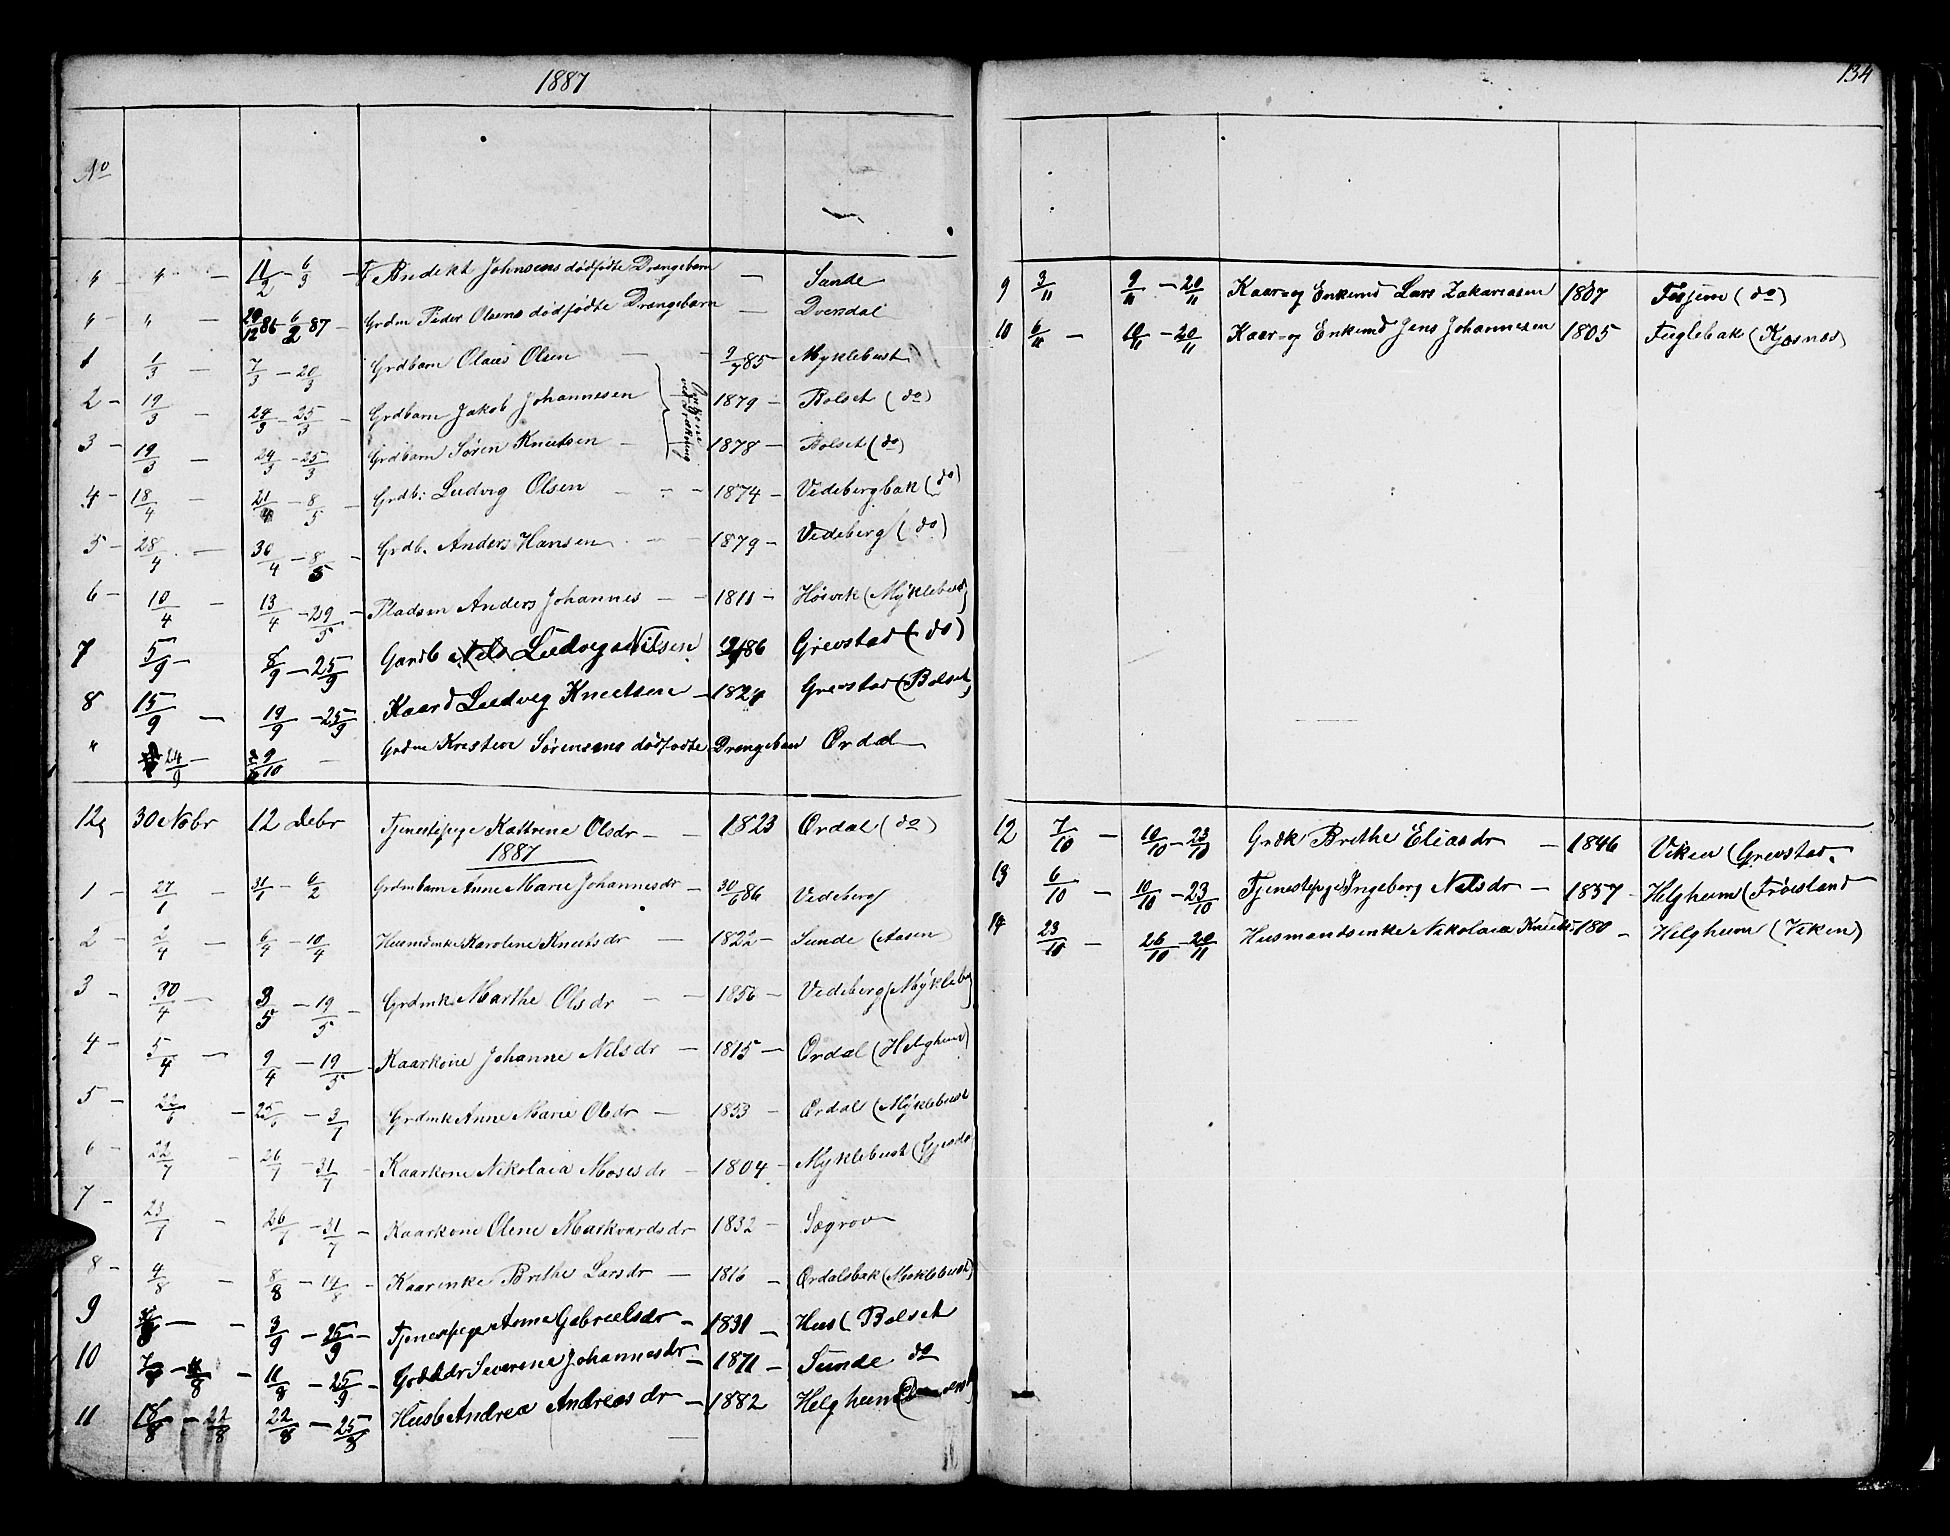 1887
134
No
" " — 11/2 - 6/3 — Bendekt Johnsens dødfødte Drengebarn — Sunde
" " — 29/12 86 - 6/2 87 — Grdm Peder Olsens dødfødte Drengebarn — Dvergsdal
1 1/3 — 7/3 - 20/3 Grdbarn Olaus Olsen — — 9/7 85 — Myklebust
2 — 19/3 — 24/3 - 25/3 — Grdbarn Jakob Johannesen 1879 — Bolset (do)
3 — 19/3 — 24/3 - 25/3 Grdbarn Søren Knutsen — 1878 — Bolset (do)
4 — 18/4 — 21/4 - 8/5 — Grdb: Ludvig Olsen — " — 1874 — Vedebergbak (do)
5 — 28/4 — 30/4 - 8/5 — Grdb. Anders Hansen — — 1879 — Vedeberg (do)
6 — 10/4 — 13/4 - 29/5 — Pladsm Anders Johannes — — 1811 — Høsvik (Myklebust)
7 5/9 — 8/9 - 25/9 Gardb Ludvig Nilsen 86 Grevstad (do)
8 15/9 — 19/9 - 25/9 Kaard Ludvig Knutsen — 1824 Grevstad (Bolset)
" 24/9 — 9/10 — Grdm Kristen Sørensens dødfødte Drengebarn Ordal
12 30 Nobr 12 Debr Tjenestepige Kattrine Olsdr — — 1823 Ordal (do)
1887
1 — 27/1 — 31/1 - 6/2 Grdmbarn Anne Marie Johannesdr — 30/6 86 Vedeberg
2 — 2/4 — 6/4 - 10/4 Husmdnke Karoline Knutsdr — 1822 — Sunde (Aasen)
3 — 30/4 — 3/5 - 19/5 — Grdmk Marthe Olsdr — — 1856 — Vedeberg (Mykleb)
4 — 5/4 — 9/4 - 19/5 — Kaarkone Johanne Nelsdr — 1815 — Ordal (Helgheim)
5 — 22/6 — 25/6 - 3/7 Grdmk Anne Marie Olsdr — 1853 — Ordal (Myklebust
6 — 22/7 — 26/7 - 31/7 — Kaarkone Nikolaia Mosesdr — 1804 — Myklebust
7 — 23/7 — 26/7 - 31/7 — Kaarkone Olene Markvardsdr — 1832 — Søgrov
8 — 4/8 — 8/8 - 14/8 — Kaarenke Brithe Larsdr — 1816 — Ordalsbak (Myklebust)
9 — 3/9 - 25/9 — Tjenespige Anne Gabrielsdr — 1831 — Hus ( Bolset
10 — 11/8 - 25/9 — Severine Johannesdr — 1871 — Sunde do
11 18/8 - 22/8 22/8 - 25/8 Husb Andrea Andreasdr — 1882 Helgheim
9 3/11 9/11 - 20/11 Kaar- og Enkemd Lars Zakariasen 1807 Fosjem (do)
10 6/11 — 10/11 - 20/11 Kaar- og Enkemd Jens Johannesen 1805 Fuglebak (Kjøsnes)
12 7/10 — 10/10 - 23/10 Grdk Brithe Eliasdr — 1846 Viken (Grevstad
13 6/10 — 10/10 - 23/10 Tjenestepige Ingeberg Nelsdr — 1857 — Helgheim (Frøisland
14 23/10 — 26/10 - 20/11 Husmandsenke Nikolaia Knuts 180 — Helgheim (Viken)